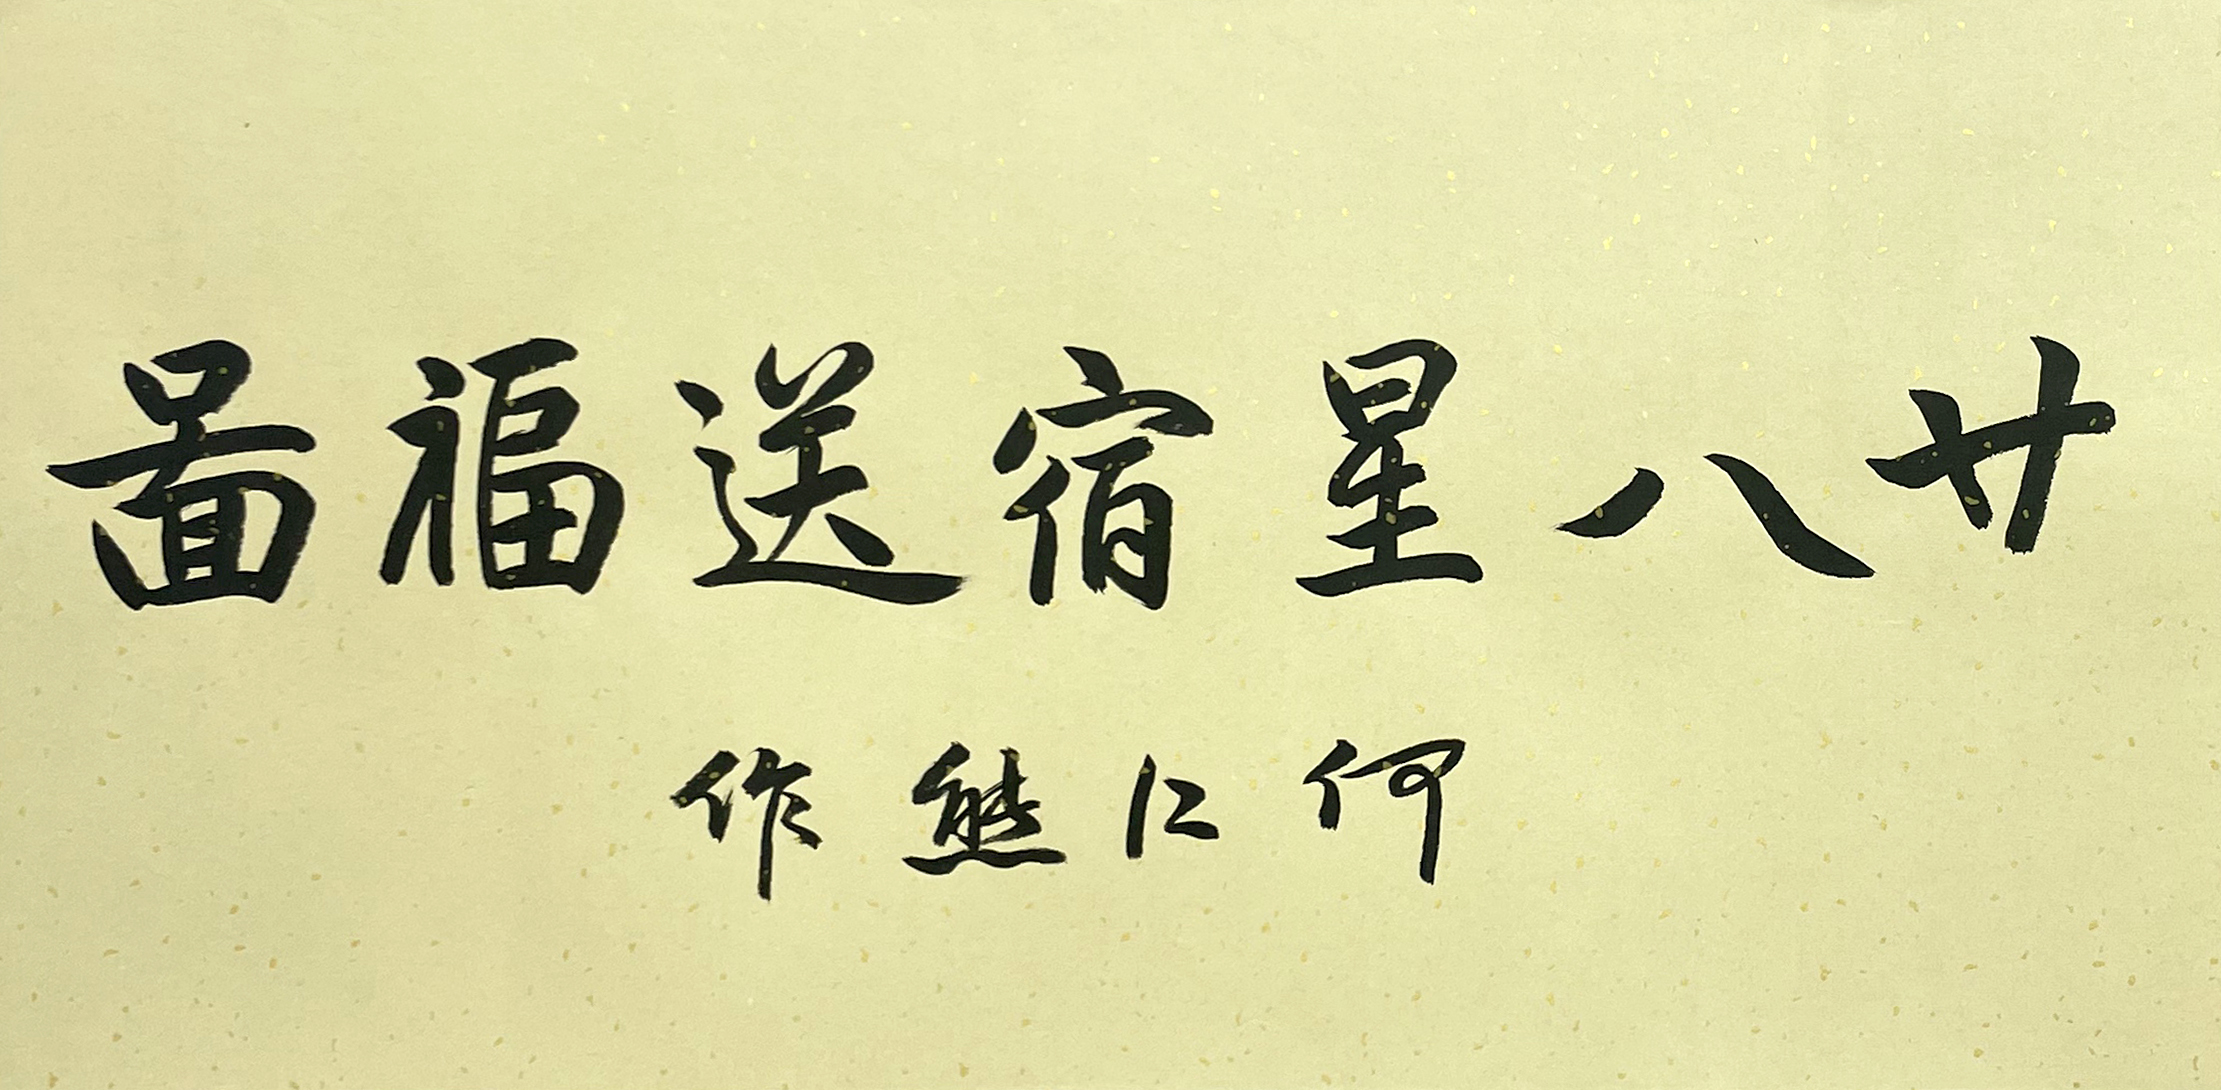 廿八星宿送福啚
何仁熊作